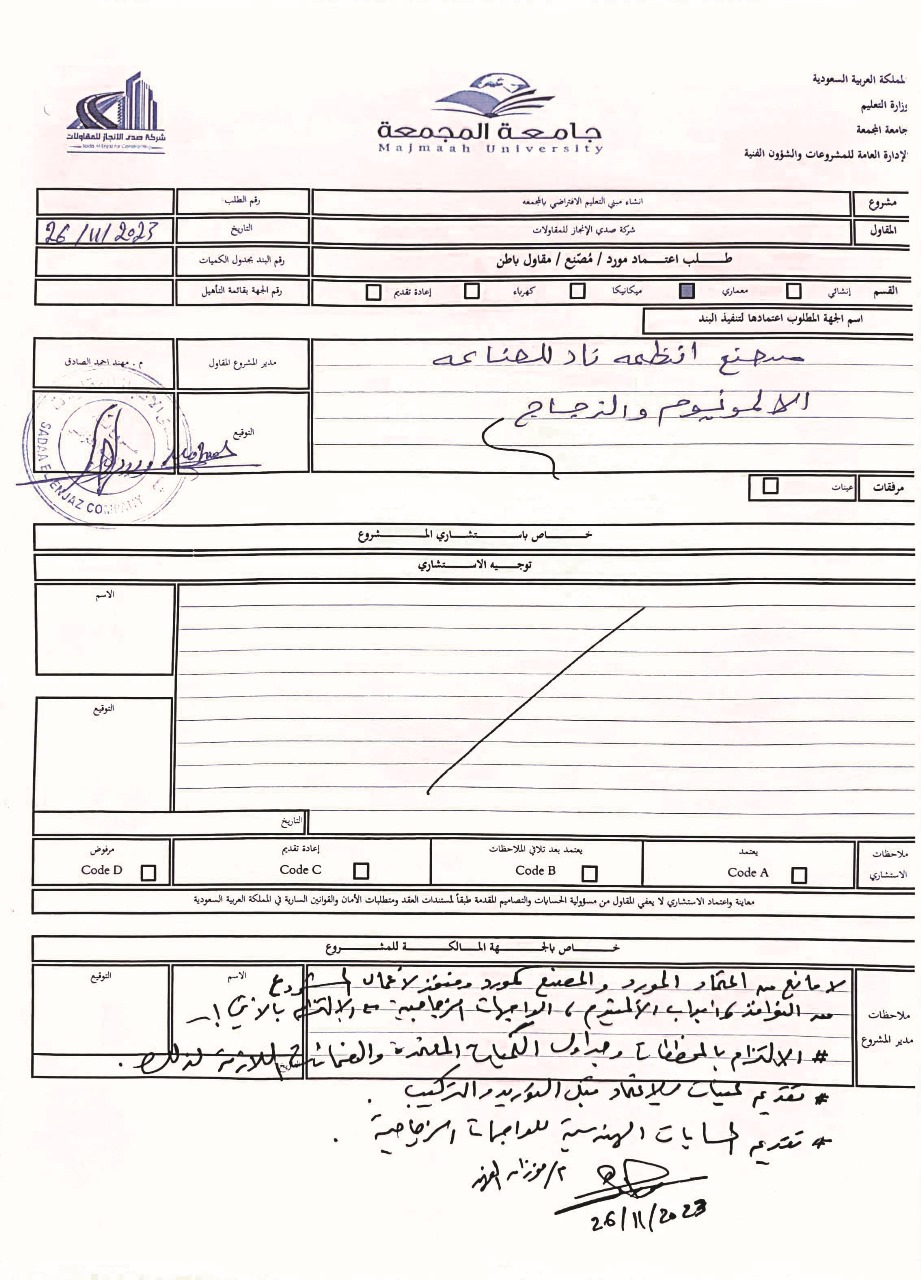 المملكة العربية السعودية
وزارة التعليم
جامعة المجمعة
الإدارة العامة للمشروعات والشؤون الفنية
جامعة المجمعة
Majmaah University
شركة صدى الانجاز للمقاولات
مشروع انشاء مبني التعليم الافتراضي بالمجمعه رقم الطلب
المقاول شركة صدي الإنجاز للمقاولات التاريخ 26/11/2023
طـــلب اعـتـــماد مورد / مُصنّع / مقاول باطن رقم البند بجدول الكميات
القسم إنشائي معماري ميكانيكا كهرباء إعادة تقديم رقم الجهة بقائمة التأهيل
اسم الجهة المطلوب اعتمادها لتنفيذ البند
مصنع انظمه ناد للصناعه مدير المشروع المقاول م. مهند احمد الصادق
الالمونيوم والزجاج
التوقيع
SADAA EL-ENJAZ COMPANY
مرفقات عينات
خـــاص باســـتشاري المـــشروع
توجـــيه الاســـتشاري
الاسم
التوقيع
التاريخ
ملاحظات الاستشاري يعتمد Code A يعتمد بعد تلافي الملاحظات Code B إعادة تقديم Code C مرفوض Code D
معاينة واعتماد الاستشاري لا يعفي المقاول من مسؤولية الحسابات والتصاميم المقدمة طبقاً لمستندات العقد ومتطلبات الأمان والقوانين السارية في المملكة العربية السعودية
خـــاص بالجـــهة المـــالكـــة للمـــشروع
ملاحظات مدير المشروع الاسم التوقيع
لا مانع من اعتماد المورد والمصنع كمورد ومنفذ لأعمال المشروع
من النوافذ وأبواب الألمنيوم، الواجهات الزجاجية مع الالتزام بالآتي :-
# الالتزام بالمخططات وجداول الكميات المعتمدة والضمانات اللازمة لذلك.
# تقديم عينات للاعتماد قبل التوريد والتركيب.
# تقديم الحسابات الهندسية للواجهات الزجاجية.
26/11/2023